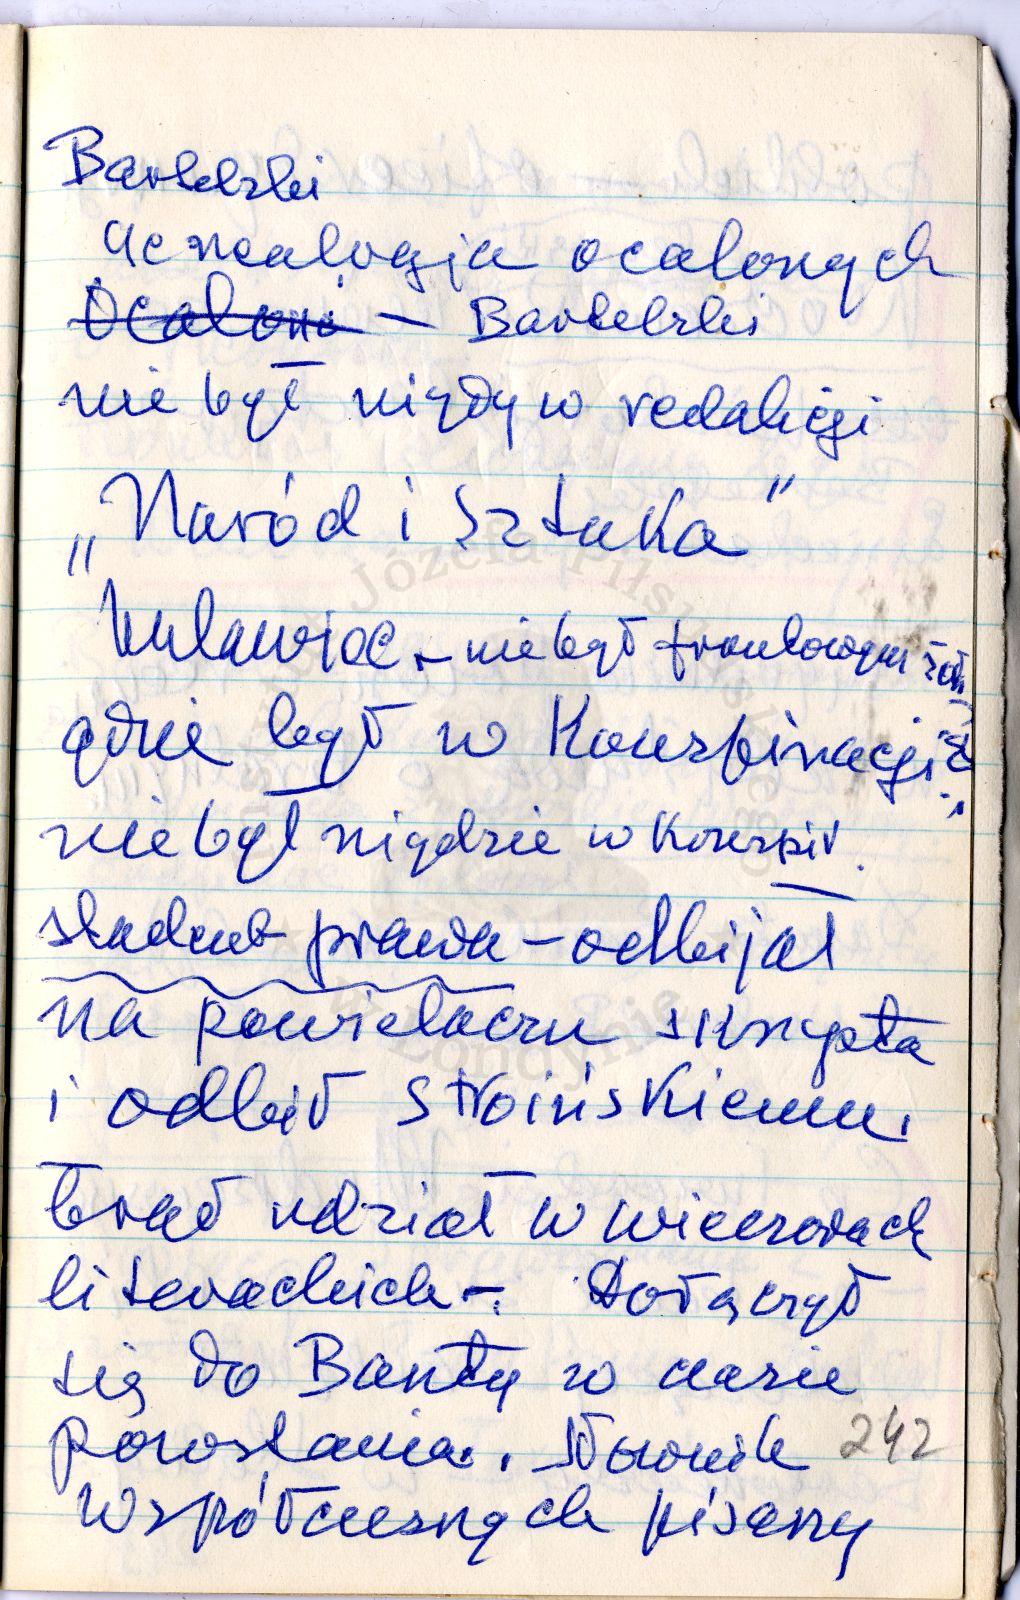 Bartelski
Genealogja ocalonych
Ocaleni - Bartelski
nie był nigdy w redakcji
„Naród i Sztuka"
- nie był frontowym żołn
gdzie był w Konspiracji
nie był nigdzie w Konspir.
student prawa - odbijał
na powielaczu skrypta
i odbił Stroińskiemu.
brał udział w wieczorach
literackich -. Dołączył
się do Banty w czasie
powstania. Słownik 242
Współczesnych pisarzy
Józefa Piłsudskiego
w Londynie